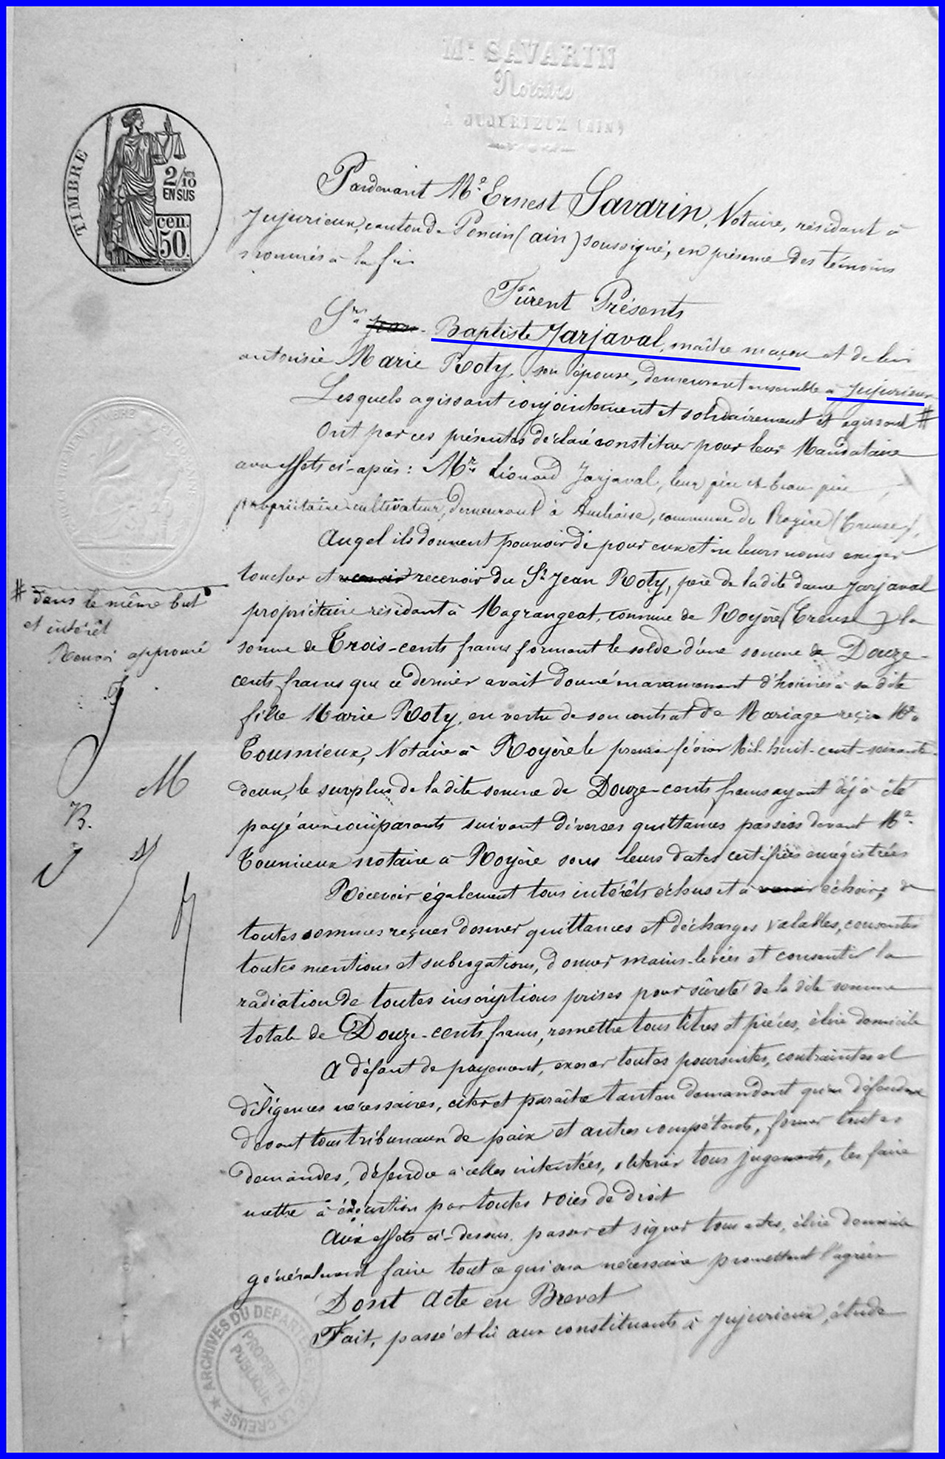 Me SAVARIN
Notaire
À JUJURIEUX (AIN)
TIMBRE
2/10
EN SUS
50 cen.
Pardevant Me Ernest Savarin, Notaire, résidant à
Jujurieux, canton de Poncin (ain) soussigné, en présence des témoins
nommés à la fin
Fûrent Présents
Sr Jean Baptiste Jarjaval, maître maçon et de lui
autorisée Marie Roty, son épouse, demeurant ensemble à Jujurieux
Lesquels agissant conjointement et solidairement et agissant #
Ont par ces présentes déclaré constituer pour leur Mandataire
aux effets ci-après: Mr Léonard Jarjaval, leur père et beau père
propriétaire cultivateur, demeurant à commune de Royère (Creuse),
Auquel ils donnent pouvoir de pour eux et en leurs noms exiger
toucher et recevoir du Sr Jean Roty, père de la dite dame Jarjaval
propriétaire résidant à Magrangeat, commune de Royère (Creuse) la
somme de Trois-cents francs formant le solde d'une somme de Douze-
cents francs que ce dernier avait donné à sa dite
fille Marie Roty, en vertu de son contrat de Mariage reçu Me
Toumieux, Notaire à Royère le premier février Mil-huit-cent-soixante-
deux, le surplus de la dite somme de Douze-cents francs ayant déjà été
payé aux comparants suivant diverses quittances passées devant Me
Toumieux notaire à Royère sous leurs dates certifiées enregistrées
Recevoir également tous intérêts échus et à échoir, de
toutes sommes reçues donner quittances et décharges valables, consentir
toutes mentions et subrogations, donner mains-levées et consentir la
radiation de toutes inscriptions prises pour sûreté de la dite somme
totale de Douze-cents francs, remettre tous titres et pièces, élire domicile
A défaut de payement, exercer toutes poursuites, contraintes et
diligences nécessaires, citer et paraître tant en demandant qu'en défendant
devant tous tribunaux de paix et autres compétents, former toutes
demandes, défendre à celles intentées, obtenir tous jugements, les faire
mettre à exécution par toutes voies de droit
Aux effets ci-dessus passer et signer tous actes, élire domicile
généralement faire tout ce qui sera nécessaire promettant l'agréer
Dont Acte en Brevet
Fait, passé et lu aux constituants à Jujurieux, étude
# dans le même but
et intérêt
Renvoi approuvé
J
M
B.
J
ARCHIVES DU DÉPARTEMENT DE LA CREUSE
PROPRIÉTÉ
PUBLIQUE